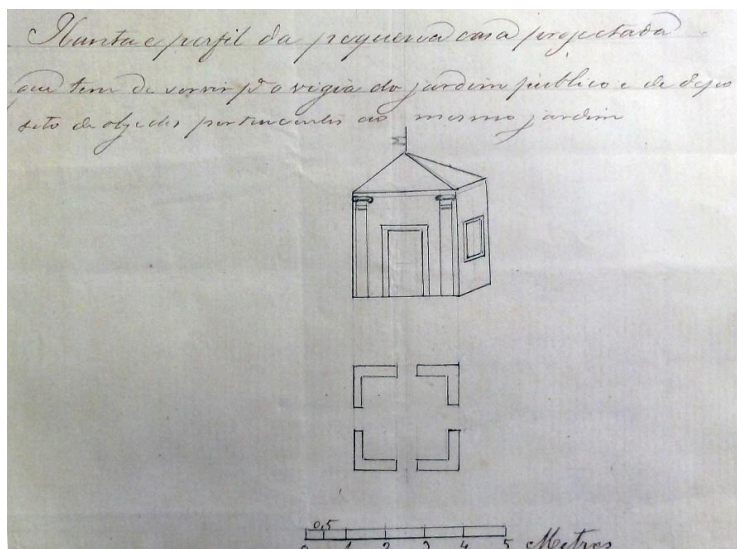 Planta e perfil da pequena casa projectada
que tem de servir pª o vigia do jardim publico e de depo
sito de objectos pertencentes ao mesmo jardim
0,5
0 1 2 3 4 5 Metros